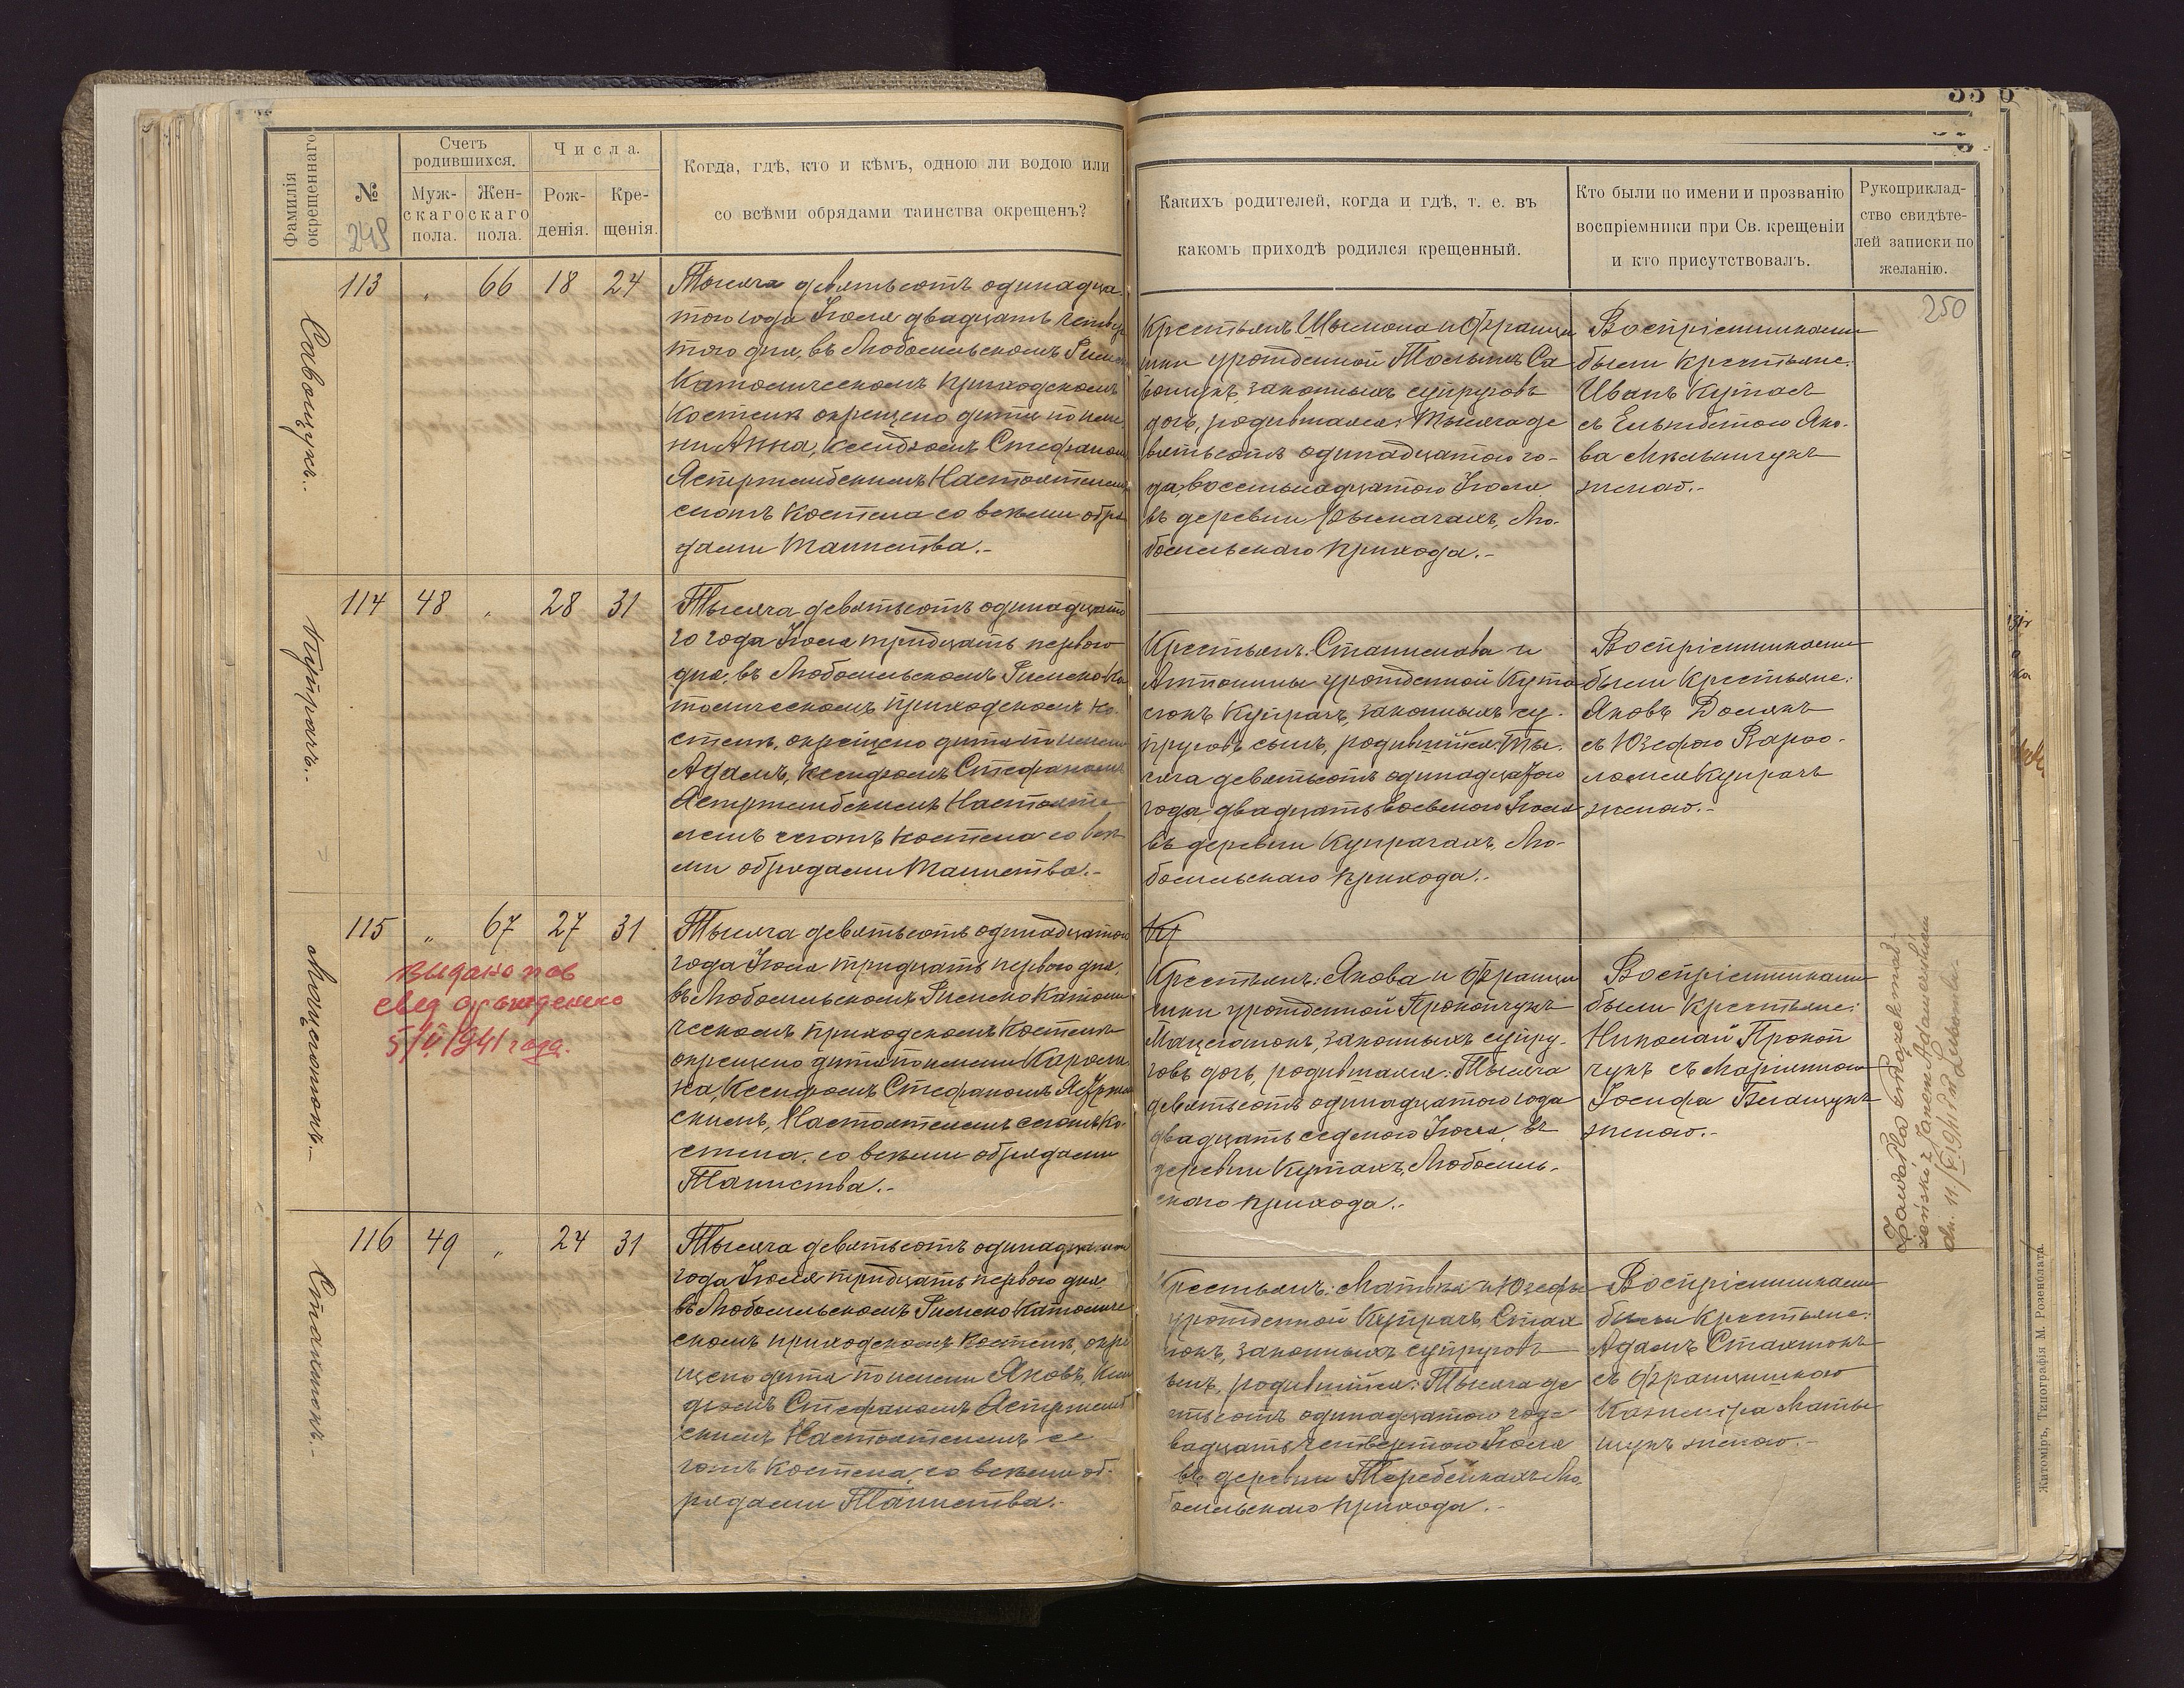 Фамилія окрещеннаго
№
249
Счетъ родившихся.
Муж-
скаго
пола.
Жен-
скаго
пола.
Числа.
Рож-
денія.
Кре-
щенія.
Когда, гдѣ, кто и кѣмъ, одною ли водою или
со всѣми обрядами таинства окрещенъ?
Савощукъ.-
113
„
66
18
24
Тысяча девятьсотъ одинадца-
того года Іюля двадцать четвер
того дня, въ Любомльскомъ Римско
Католическомъ приходскомъ
Костелѣ окрещено дитя по име-
ни Анна, Ксендзомъ Стефаномъ
Ястржембскимъ Настоятелемъ
сногъ Костела со всѣми обря
дами Таинства.-
Купрачъ.-
114
48
„
28
31
Тысяча девятьсотъ одинадцато
го года Іюля тридцать перваго
дня, въ Любомльскомъ Римско-Ка
толическомъ приходскомъ Ко-
стелѣ, окрещено дитя по имени
Адамъ, Ксендзомъ Стефаномъ
Ястржембскимъ Настояте
лемъ сногъ Костела со всѣ
ми обрядами Таинства.-
Мацегонокъ.-
115
„
67
27
31
выдано пов
свид о рожденно
5/VI 1941 года.
Тысяча девятьсотъ одинадцатого
года Іюля тридцать перваго дня,
въ Любомльскомъ Римско Католи
ческомъ приходскомъ Костелѣ
окрещено дитя по имени Кароли
на, Ксендзомъ Стефаномъ Ястржемб
скимъ, Настоятелемъ сногъ Ко-
стела, со всѣми обрядами
Таинства.-
Стахнюкъ.-
116
49
„
24
31
Тысяча девятьсотъ одинадцатого
года Іюля тридцать перваго дня,
въ Любомльскомъ Римско Католиче
скомъ приходскомъ Костелѣ, окре
щено дитя по имени Яковъ, Ксен
дзомъ Стефаномъ Ястржемб
скимъ Настоятелемъ се
гогъ Костела, со всѣми об-
рядами Таинства.-
Какихъ родителей, когда и гдѣ, т. е. въ
какомъ приходѣ родился крещенный.
Кто были по имени и прозванію
воспріемники при Св. крещеніи
и кто присутствовалъ.
Рукоприклад-
ство свидѣте-
лей записки по
желанію.
250
Крестьянъ: Шымона и Францы
шки урожденной Тосьикъ Са
вощукъ, законныхъ супруговъ
дочь, родившаяся: Тысяча де
вятьсотъ одинадцатого го-
да, восемьнадцатого Іюля,
въ деревни Рымачахъ, Лю-
бомльскаго прихода.-
Воспріемниками
были крестьяне:
Иванъ Куталъ
съ Ельжбѣтою Яко-
ва Мельничукъ
женою.-
Крестьянъ: Станислава и
Антонины урожденной Кута
сюкъ Купрачъ, законныхъ су-
пруговъ сынъ, родившійся: Ты-
сяча девятьсотъ одинадцатого
года, двадцать восьмого Іюля
въ деревни Купрачахъ, Лю-
бомльскаго прихода.-
Воспріемниками
были Крестьяне:
Яковъ Домякъ
съ Юзефою Варѳо-
ломея Купрачъ
женою.-
Кр
Крестьянъ: Якова и Францы
шки урожденной Прокопчукъ
Мацегонокъ, законныхъ супру-
говъ дочь, родившаяся: Тысяча
девятьсотъ одинадцатого года
двадцать седьмого Іюля, въ
деревни Кутахъ, Любомль-
скаго прихода.-
Воспріемниками
были Крестьяне:
Николай Прокоп
чукъ съ Маріанною
Іосифа Бищукъ
женою.-
Zawarła związek mał-
żeński z Janem Adamerskim
dn. 11/VI 1941 r. w Lubomlu.-
Крестьянъ: Матвѣя и Юзефы
урожденной Купрачъ Стах
нюкъ, законныхъ супруговъ
сынъ, родившійся: Тысяча де
вятьсотъ одинадцатого года
двадцать четвертого Іюля
въ деревни Теребейкахъ Лю-
бомльскаго прихода.-
Воспріемниками
были Крестьяне:
Адамъ Стахнюкъ
съ Францишкою
Казиміра Матвѣ
щукъ женою.-
Житоміръ, Типографія М. Розенблата.